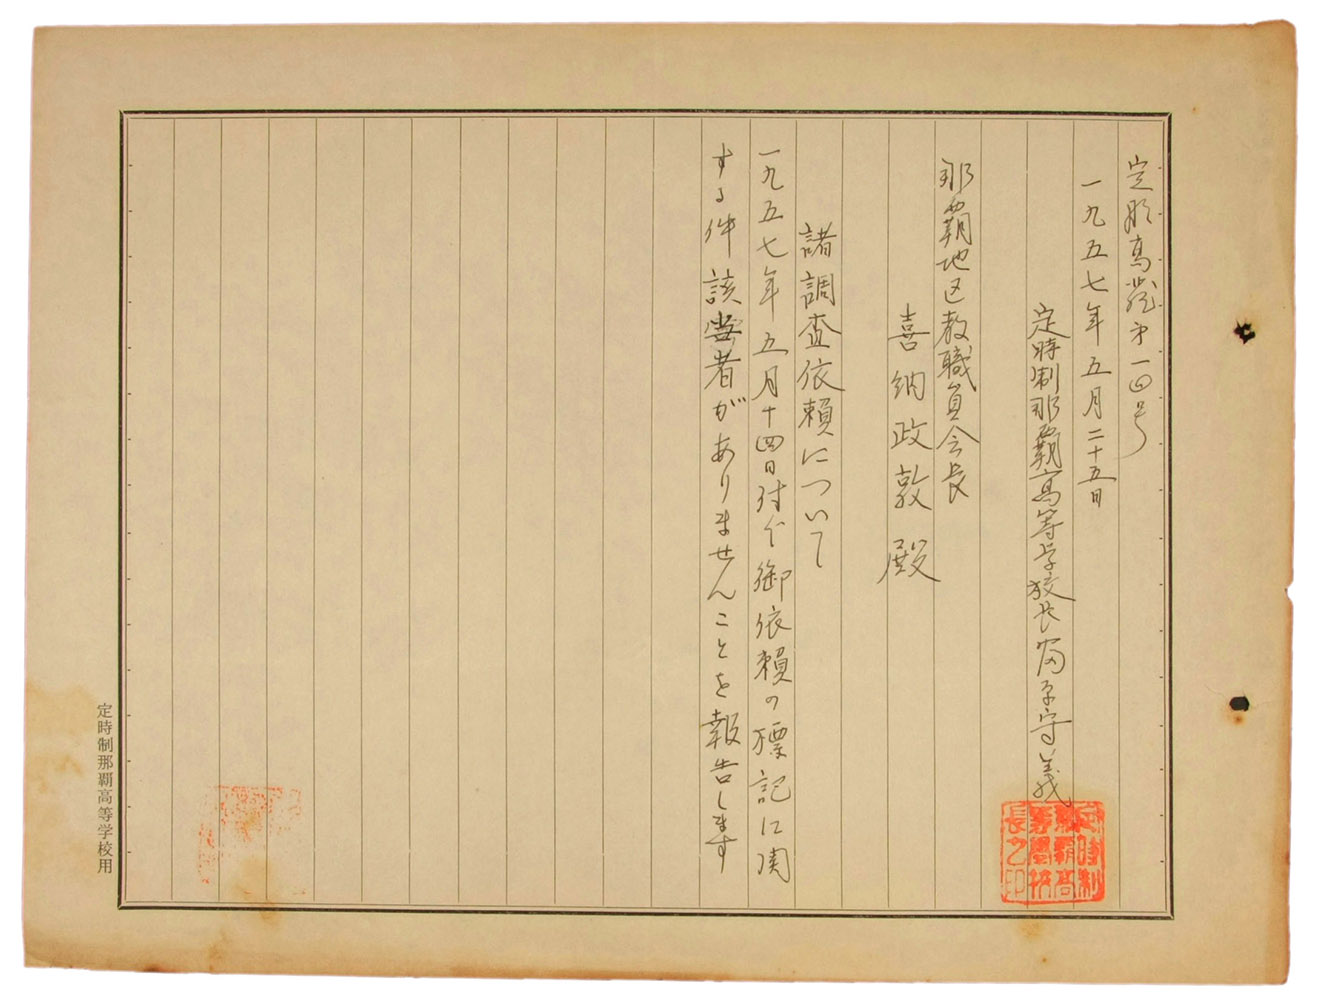 定那高発第一四号
一九五七年五月二十五日
定時制那覇高等学校長 守義
那覇地区教職員会長
喜納政敦殿
諸調査依頼について
一九五七年五月十四日付で御依頼の標記に関
する件該当者がありませんことを報告します
定時制那覇高等学校長之印
定時制那覇高等学校用